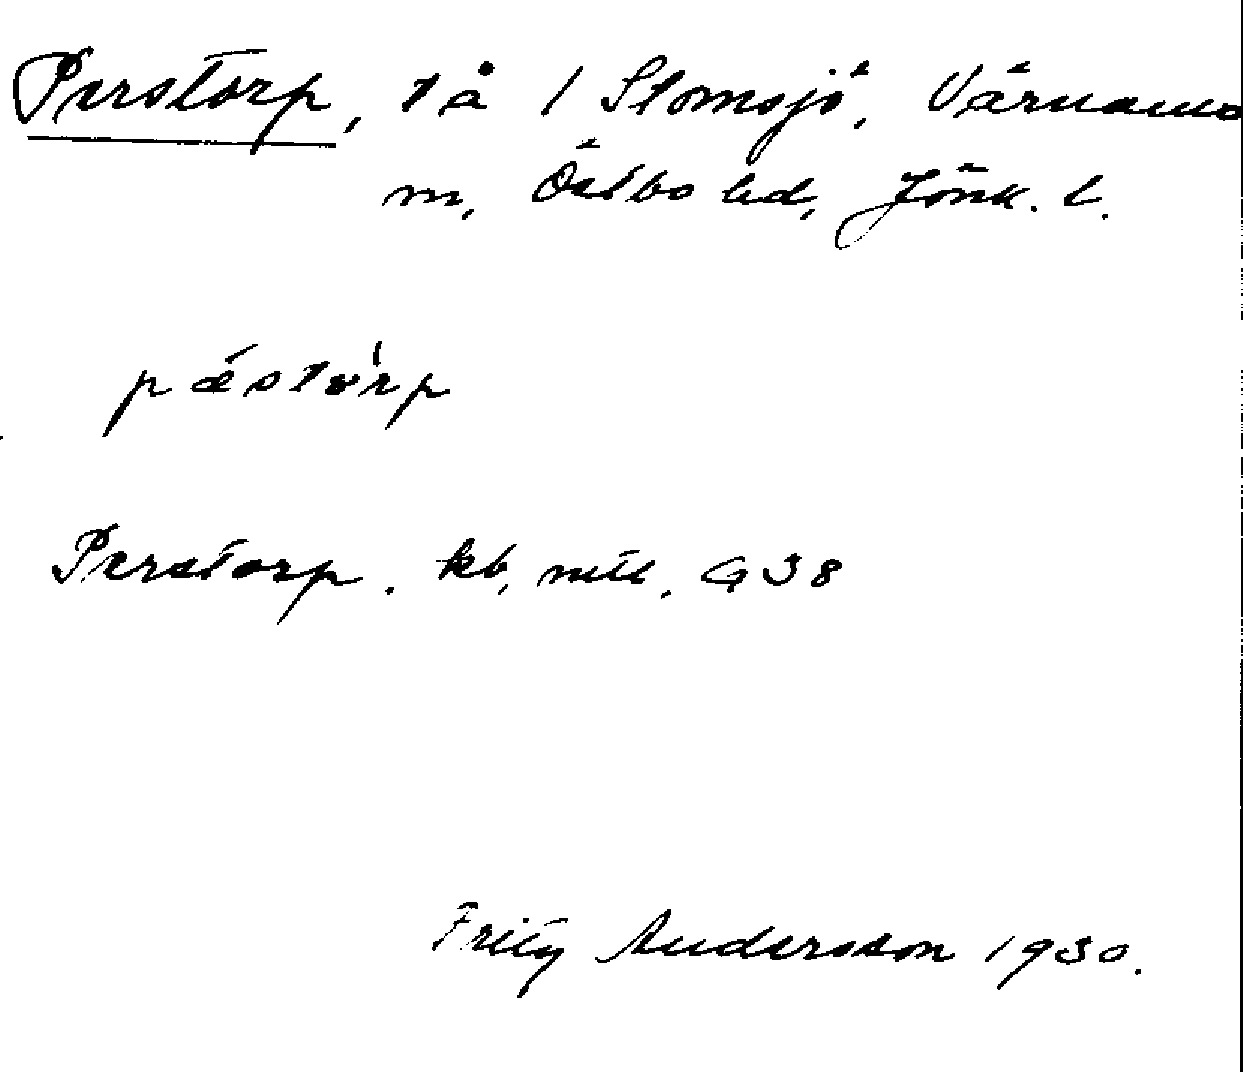 Perstorp, tå / Stomsjö, Värnamo
m, Östbo hd, Jönk. l.
pæ´stŏ'rp
Perstorp. kb, mtl. G 38
Fritz Andersson 1930.